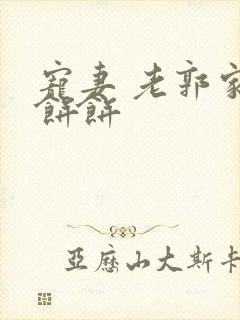 寵妻 老郭家
餅餅
亞歷山大斯卡